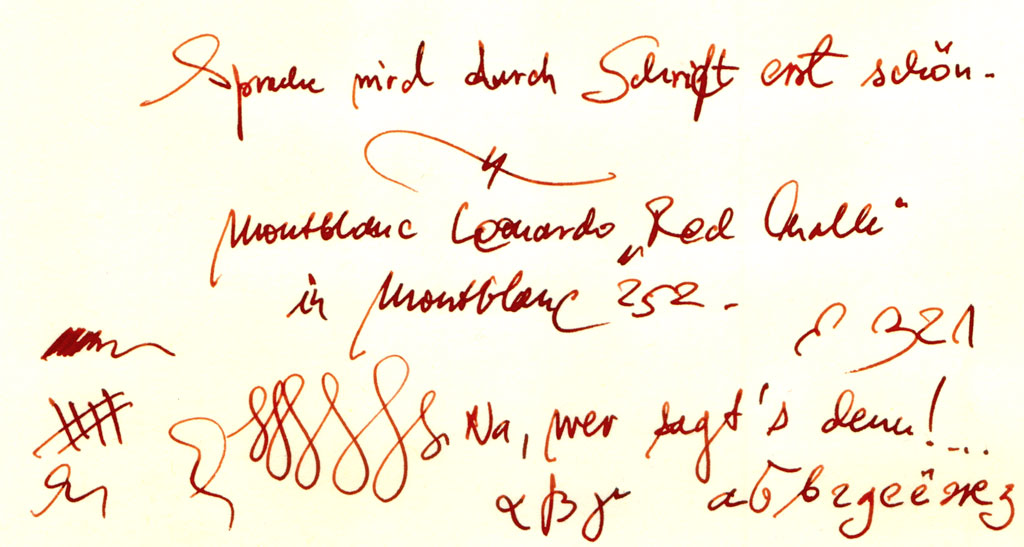 Sprache wird durch Schrift erst schön.
Montblanc Leonardo „Red Chalk“
in Montblanc 252.
321
Na, wer sagt's denn!...
α β γ абвгдеёжз